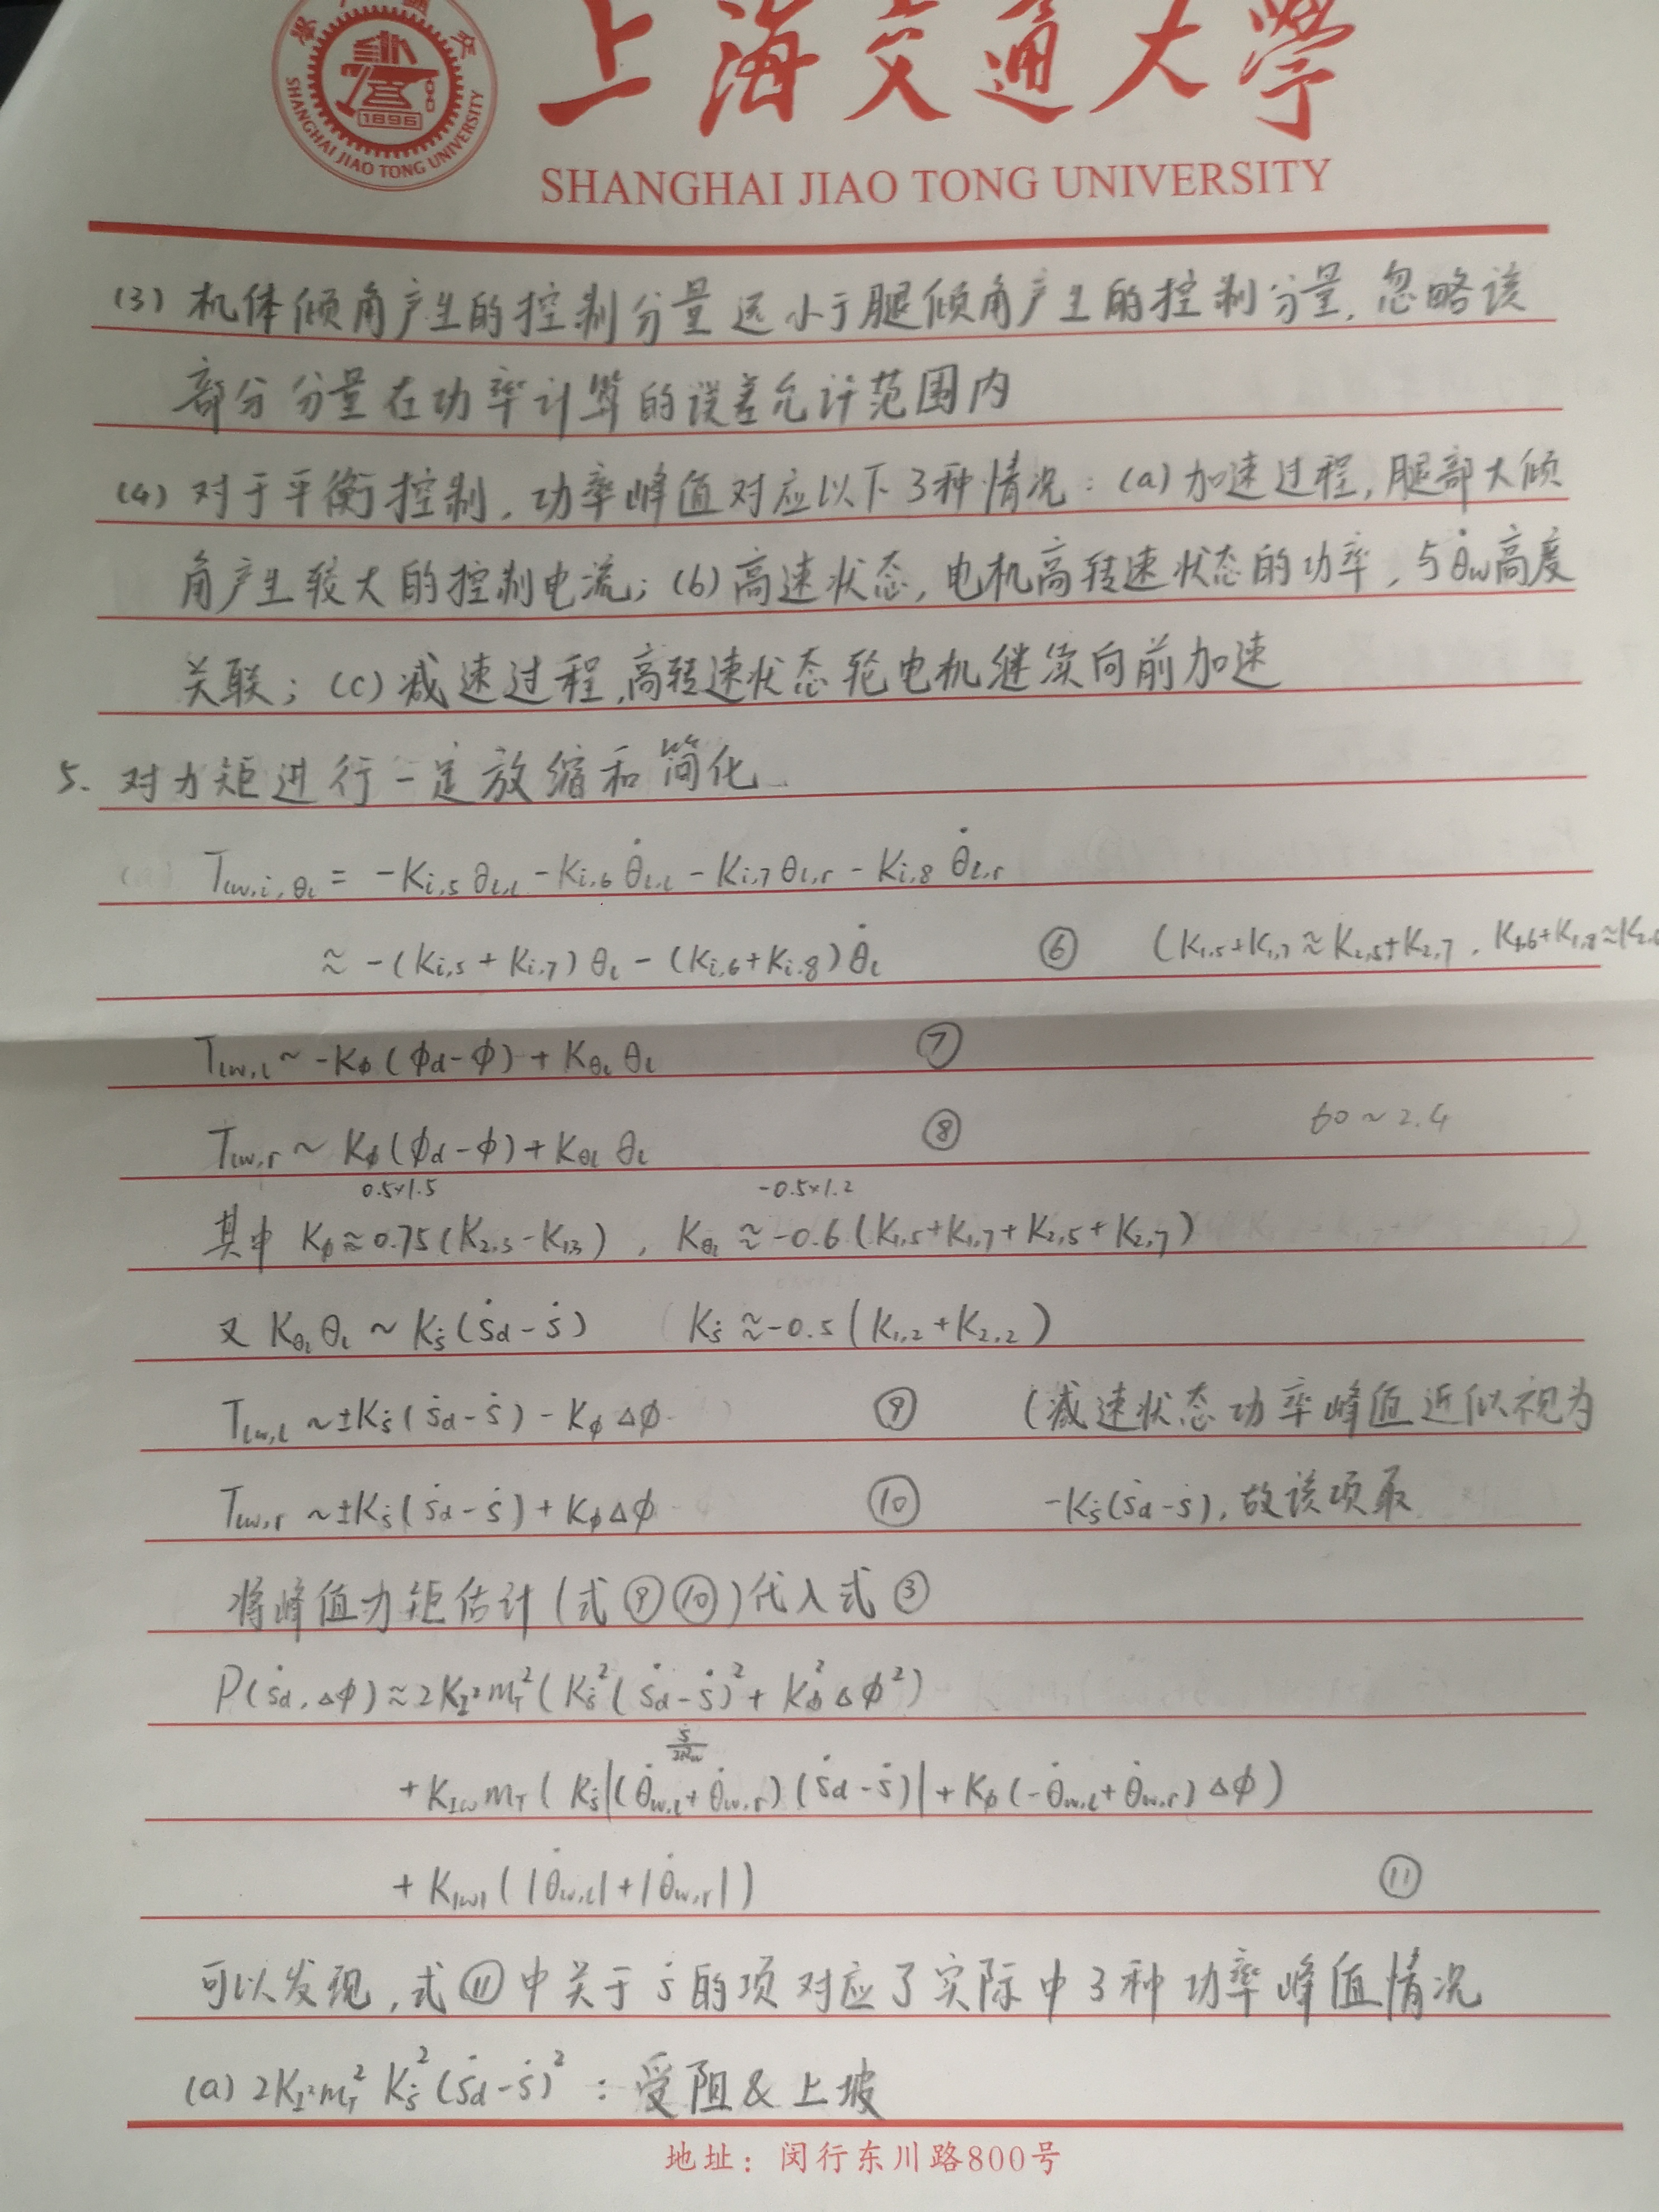 上海交通大学
SHANGHAI JIAO TONG UNIVERSITY
1896
SHANGHAI JIAO TONG UNIVERSITY
(3) 机体倾角产生的控制分量远小于腿倾角产生的控制分量, 忽略该
部分分量在功率计算的误差允许范围内
(4) 对于平衡控制, 功率峰值对应以下3种情况: (a) 加速过程, 腿部大倾
角产生较大的控制电流; (b) 高速状态, 电机高转速状态的功率, 与θ̇w高度
关联; (c) 减速过程, 高转速状态轮电机继续向前加速
5. 对力矩进行一定放缩和简化
Tlw,i,θl = -Ki,5 θl,l - Ki,6 θ̇l,l - Ki,7 θl,r - Ki,8 θ̇l,r
≈ -(Ki,5 + Ki,7) θl - (Ki,6 + Ki,8) θ̇l ⑥ (K1,5+K1,7 ≈ K2,5+K2,7, K1,6+K1,8≈K2,6
Tlw,l ~ -Kϕ(ϕd-ϕ) + Kθl θl ⑦
Tlw,r ~ Kϕ(ϕd-ϕ) + Kθl θl ⑧ 60~2.4
0.5×1.5 -0.5×1.2
其中 Kϕ≈0.75(K2,3-K1,3), Kθl ≈ -0.6(K1,5+K1,7+K2,5+K2,7)
又 Kθl θl ~ Kṡ(ṡd-ṡ) Kṡ ≈ -0.5(K1,2+K2,2)
Tlw,l ~ ±Kṡ(ṡd-ṡ) - KϕΔϕ ⑨ (减速状态功率峰值近似视为
Tlw,r ~ ±Kṡ(ṡd-ṡ) + KϕΔϕ ⑩ -Kṡ(ṡd-ṡ), 故该项取
将峰值力矩估计(式⑨⑩)代入式③
P(ṡd, Δϕ) ≈ 2KI²mT²(Kṡ²(ṡd-ṡ)² + Kϕ²Δϕ²)
ṡ/2Rw
+ KIω mT(Kṡ|(θ̇w,l+θ̇w,r)(ṡd-ṡ)| + Kϕ(-θ̇w,l+θ̇w,r)Δϕ)
+ K|ω|(|θ̇w,l|+|θ̇w,r|) ⑪
可以发现, 式⑪中关于ṡ的项对应了实际中3种功率峰值情况
(a) 2KI²mT² Kṡ²(ṡd-ṡ)²: 受阻&上坡
地址: 闵行东川路800号